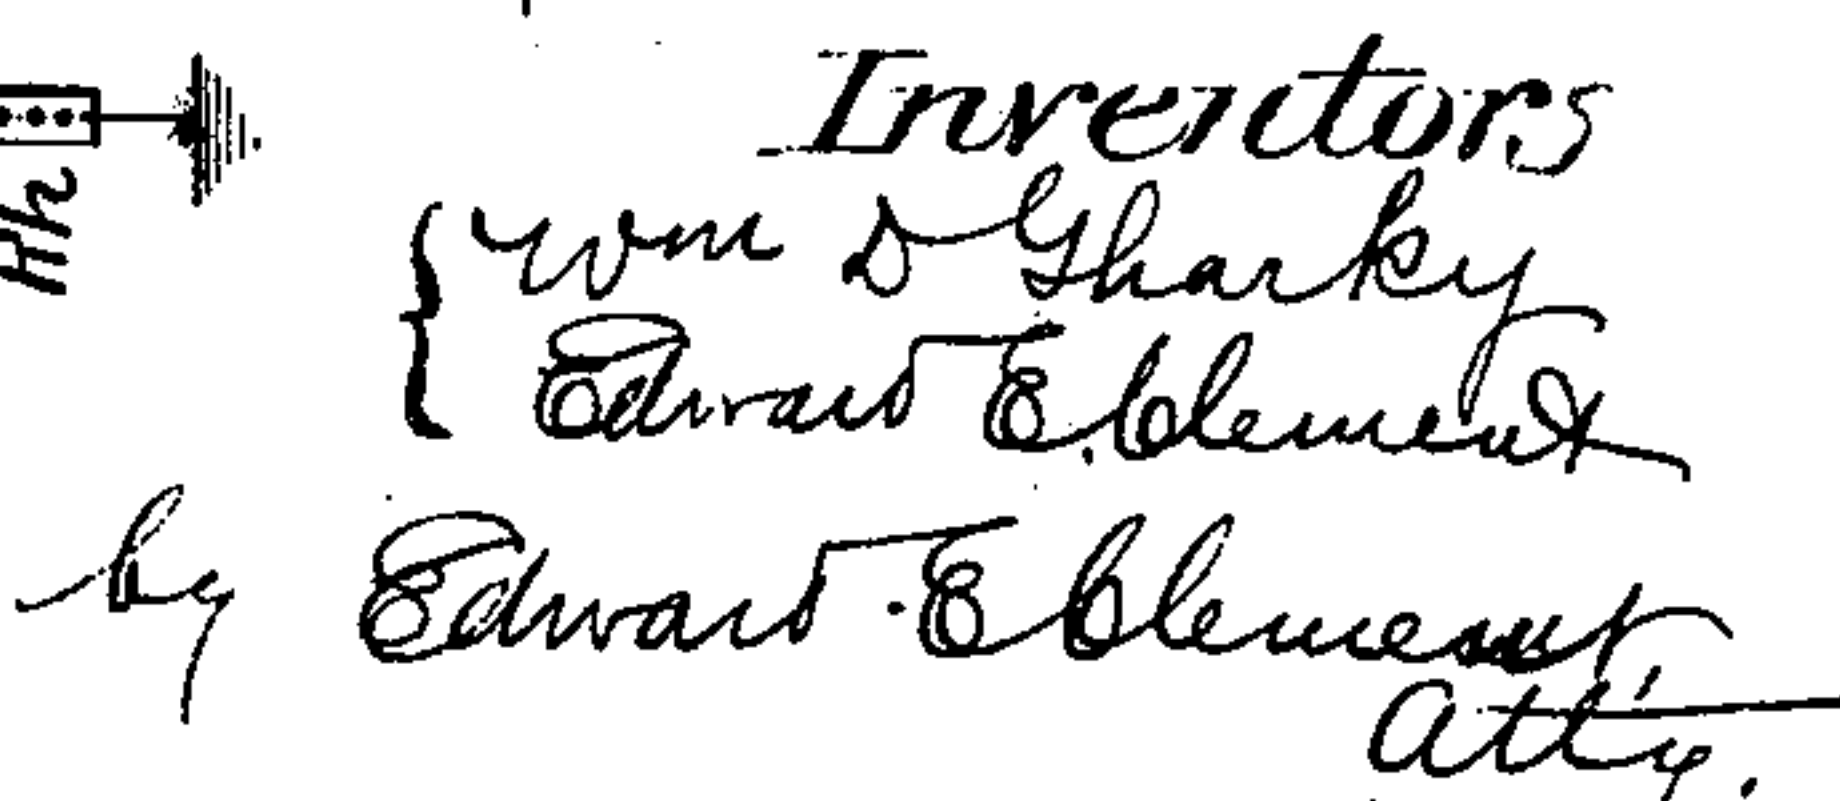 Inventors
Wm D Gharky
Edward E. Clement
by Edward E Clement
Att'y.
Rh